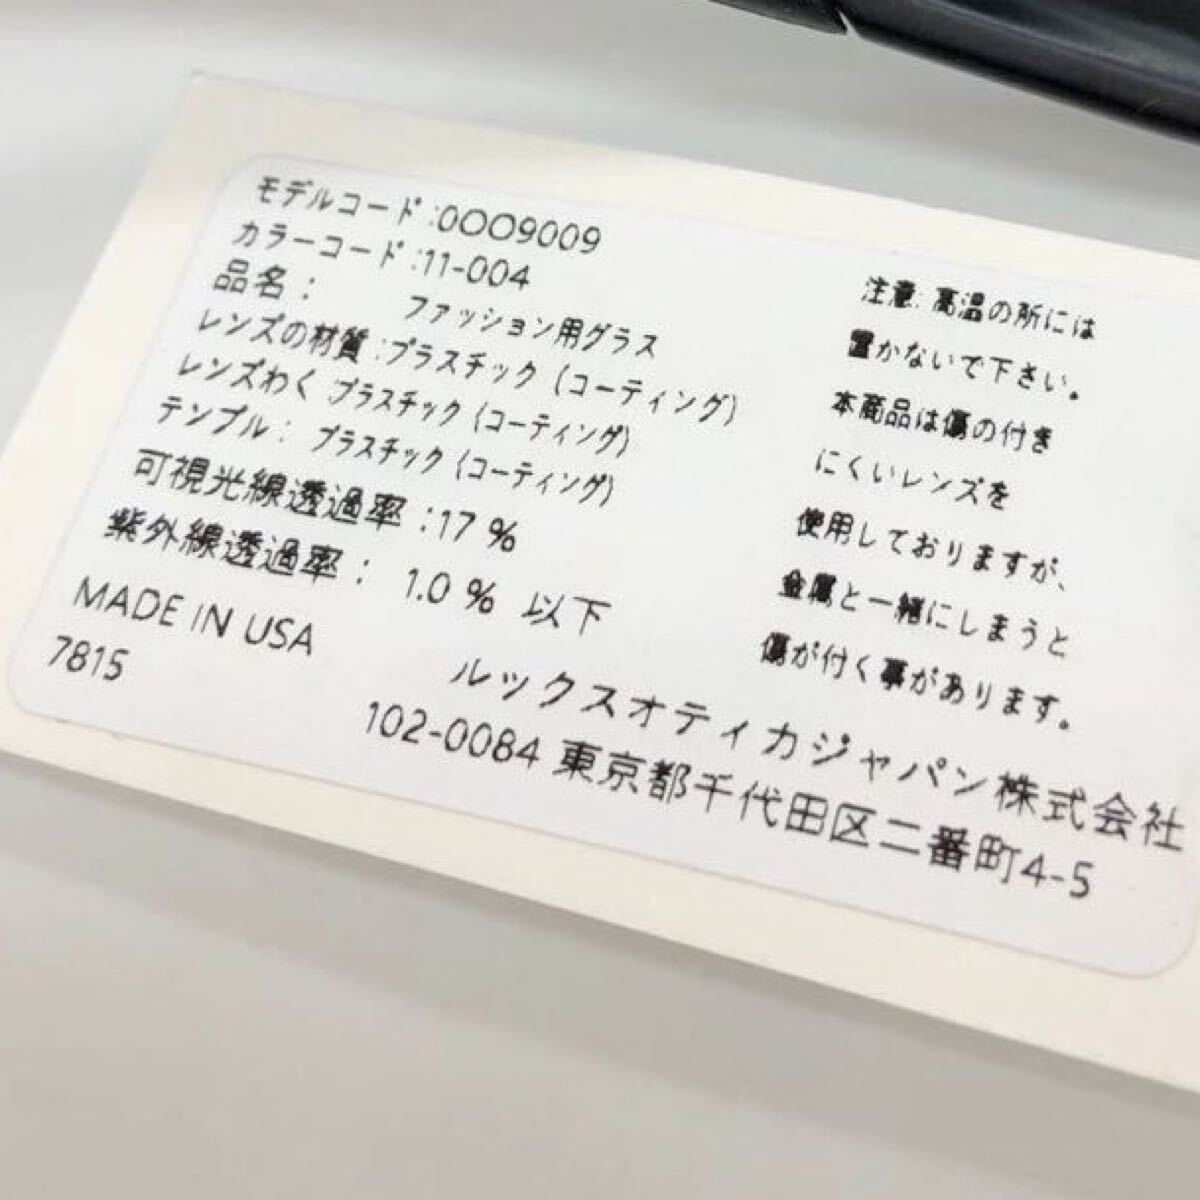 モデルコード:0OO9009
カラーコード:11-004
品名： ファッション用グラス
レンズの材質:プラスチック (コーティング)
レンズわく プラスチック (コーティング)
テンプル： プラスチック (コーティング)
可視光線透過率:17 %
紫外線透過率： 1.0 % 以下
MADE IN USA
7815
注意: 高温の所には
置かないで下さい。
本商品は傷の付き
にくいレンズを
使用しておりますが、
金属と一緒にしまうと
傷が付く事があります。
ルックスオティカジャパン株式会社
102-0084 東京都千代田区二番町4-5